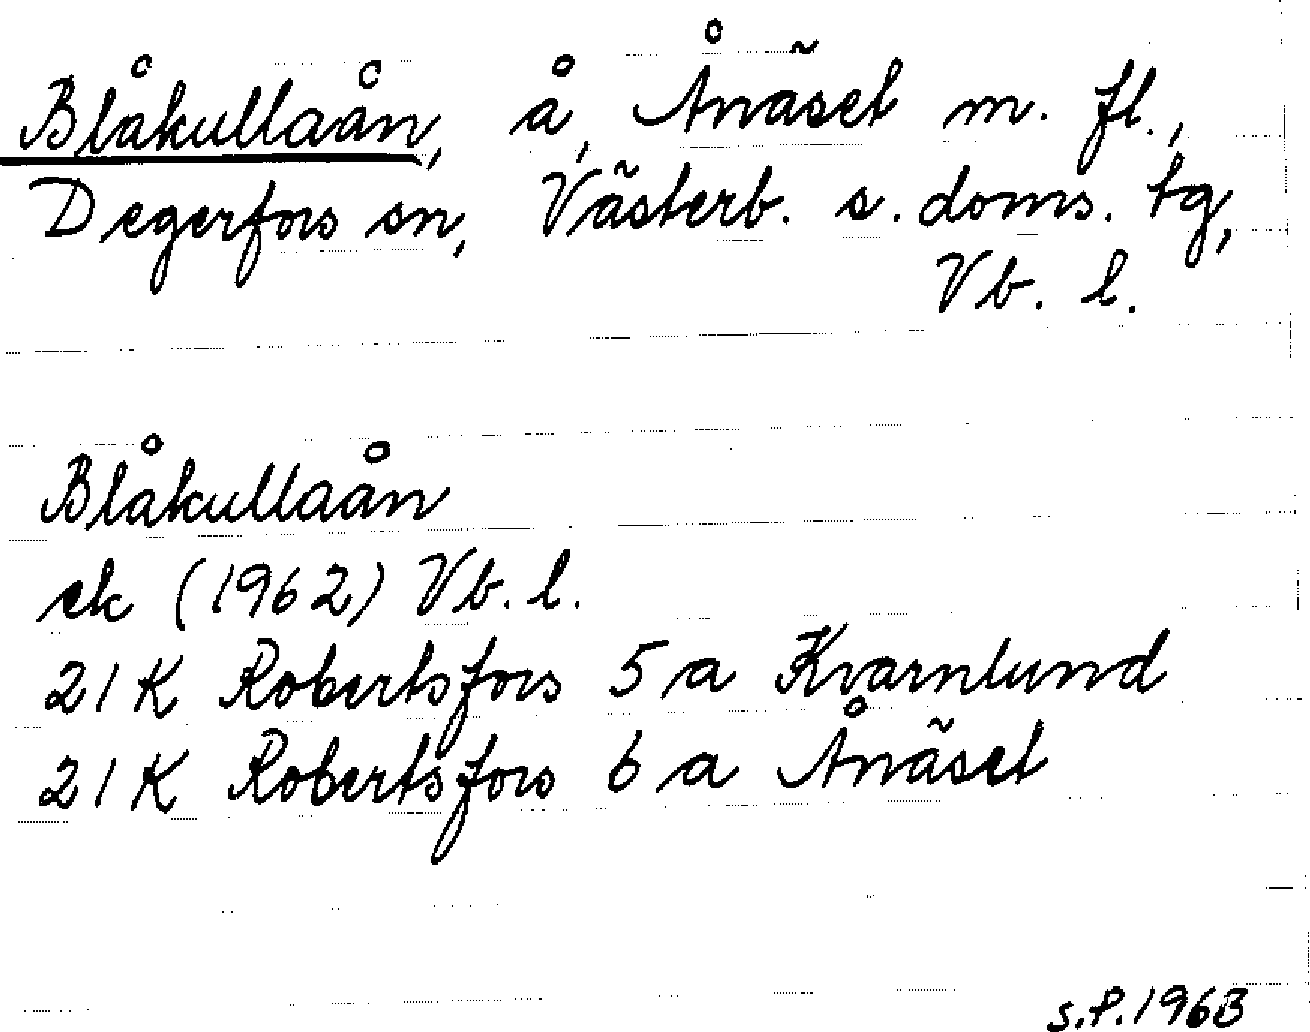 Blåkullaån, å, Ånäset m. fl.,
Degerfors sn, Västerb. s. doms. tg,
Vb. l.
Blåkullaån
ek (1962) Vb. l.
21 K Robertsfors 5 a Kvarnlund
21 K Robertsfors 6 a Ånäset
s.P. 1963